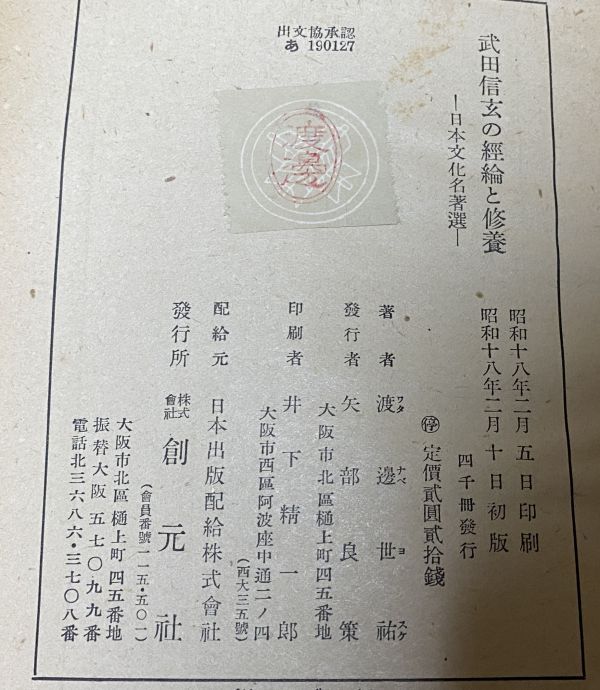 出文協承認
あ 190127
武田信玄の經綸と修養
―日本文化名著選―
渡邊
昭和十八年二月 五 日印刷
昭和十八年二月 十 日初版
四千冊發行
㊡ 定價貳圓貳拾錢
著者 渡邊世祐
ワタ ナベ ヨ スケ
發行者 矢部良策
大阪市北區樋上町四五番地
印刷者 井下精一郎
大阪市西區阿波座中通二ノ四
(西大三五號)
配給元 日本出版配給株式會社
發行所 株式會社 創元社
(會員番號一一五・五〇一)
大阪市北區樋上町四五番地
振替大阪五七〇九九番
電話北三六八六・三七〇八番